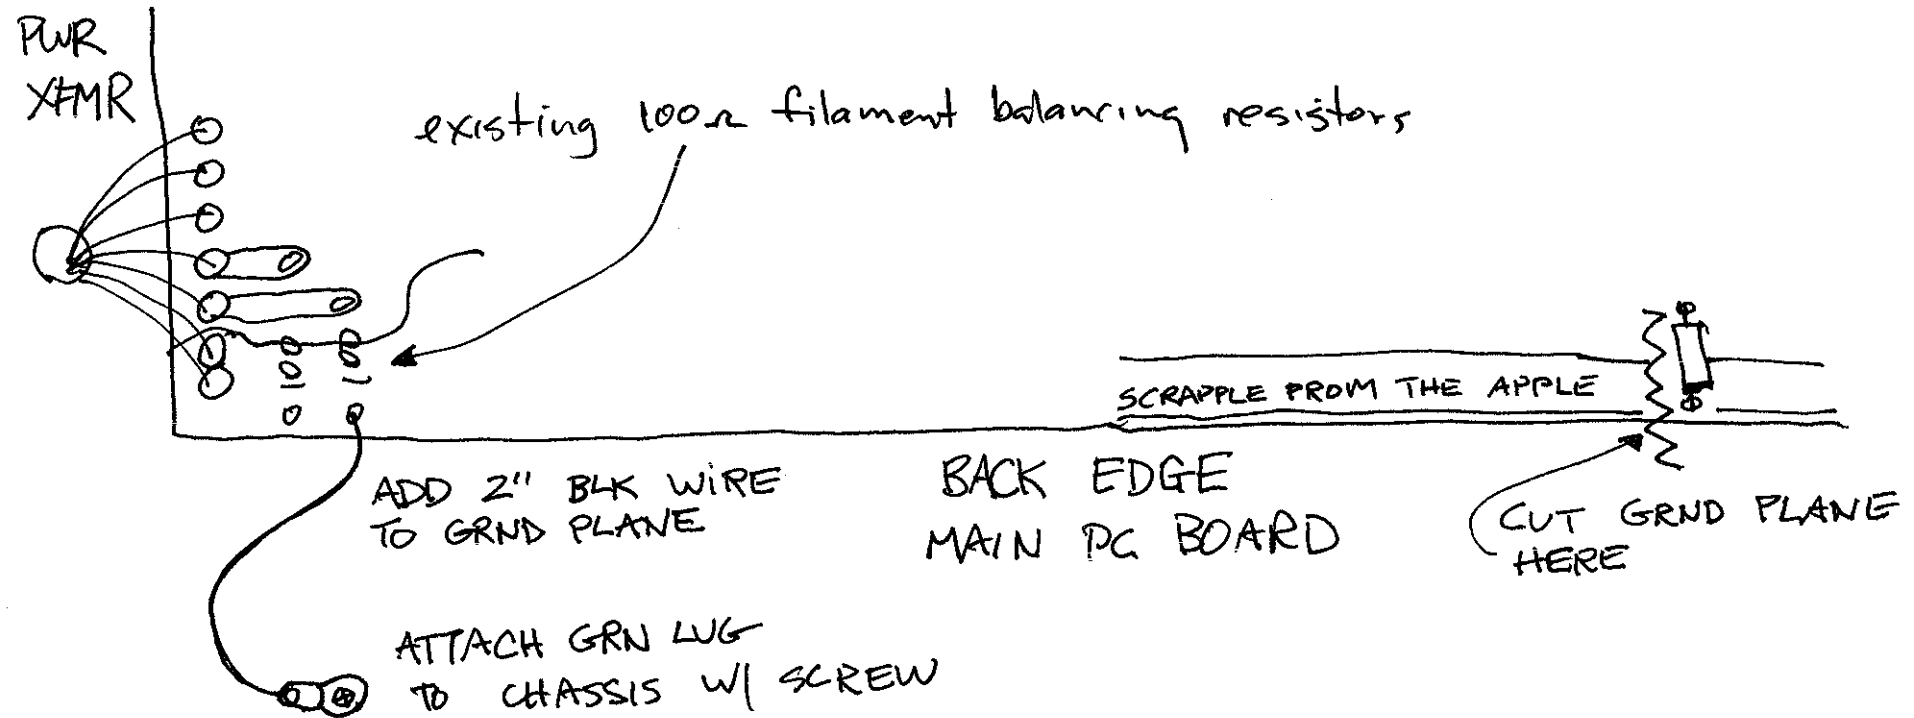 PWR
XFMR
existing 100Ω filament balancing resistors
SCRAPPLE FROM THE APPLE
ADD 2" BLK WIRE
TO GRND PLANE
BACK EDGE
MAIN PC BOARD
CUT GRND PLANE
HERE
ATTACH GRN LUG
TO CHASSIS W/ SCREW